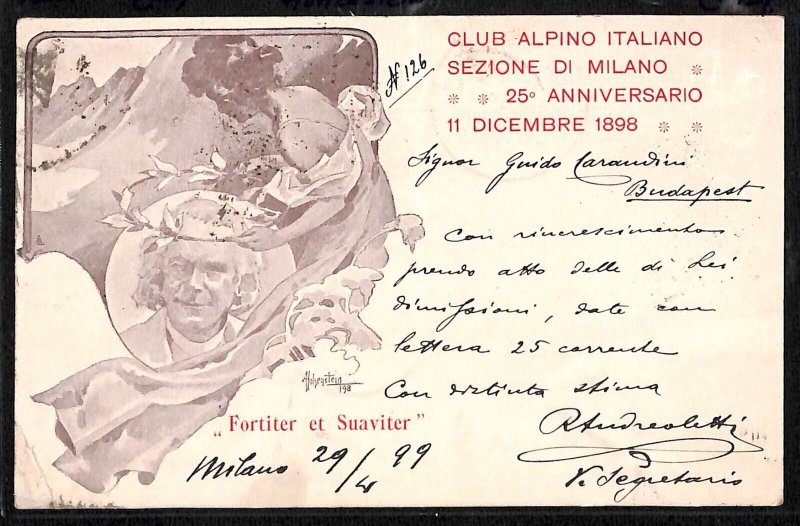 CLUB ALPINO ITALIANO
SEZIONE DI MILANO
25º ANNIVERSARIO
11 DICEMBRE 1898
N 126
Signor Guido Carandini
Budapest
Con rincrescimento
prendo atto delle di Lei
dimissioni, date con
lettera 25 corrente
Con distinta stima
RAndreoletti
V. Segretario
AHohenstein
198
„Fortiter et Suaviter"
Milano 29/4 99